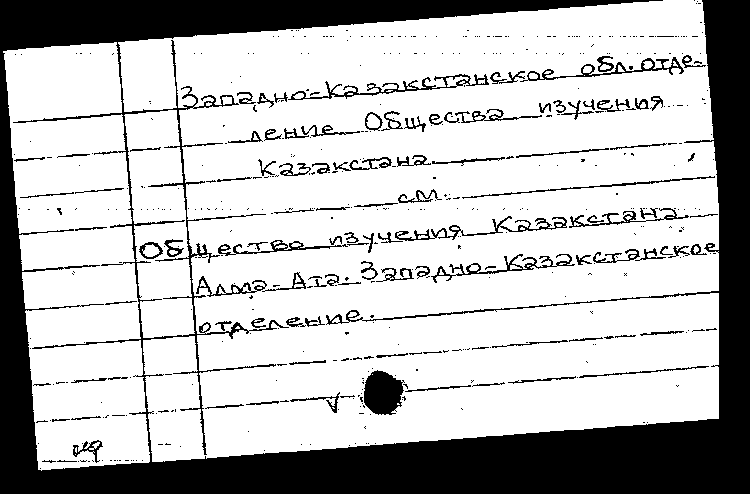 Западно-Казакстанское обл. отде-
ление Общества изучения
Казакстана
см.
Общество изучения Казакстана.
Алма-Ата. Западно-Казакстанское
отделение.